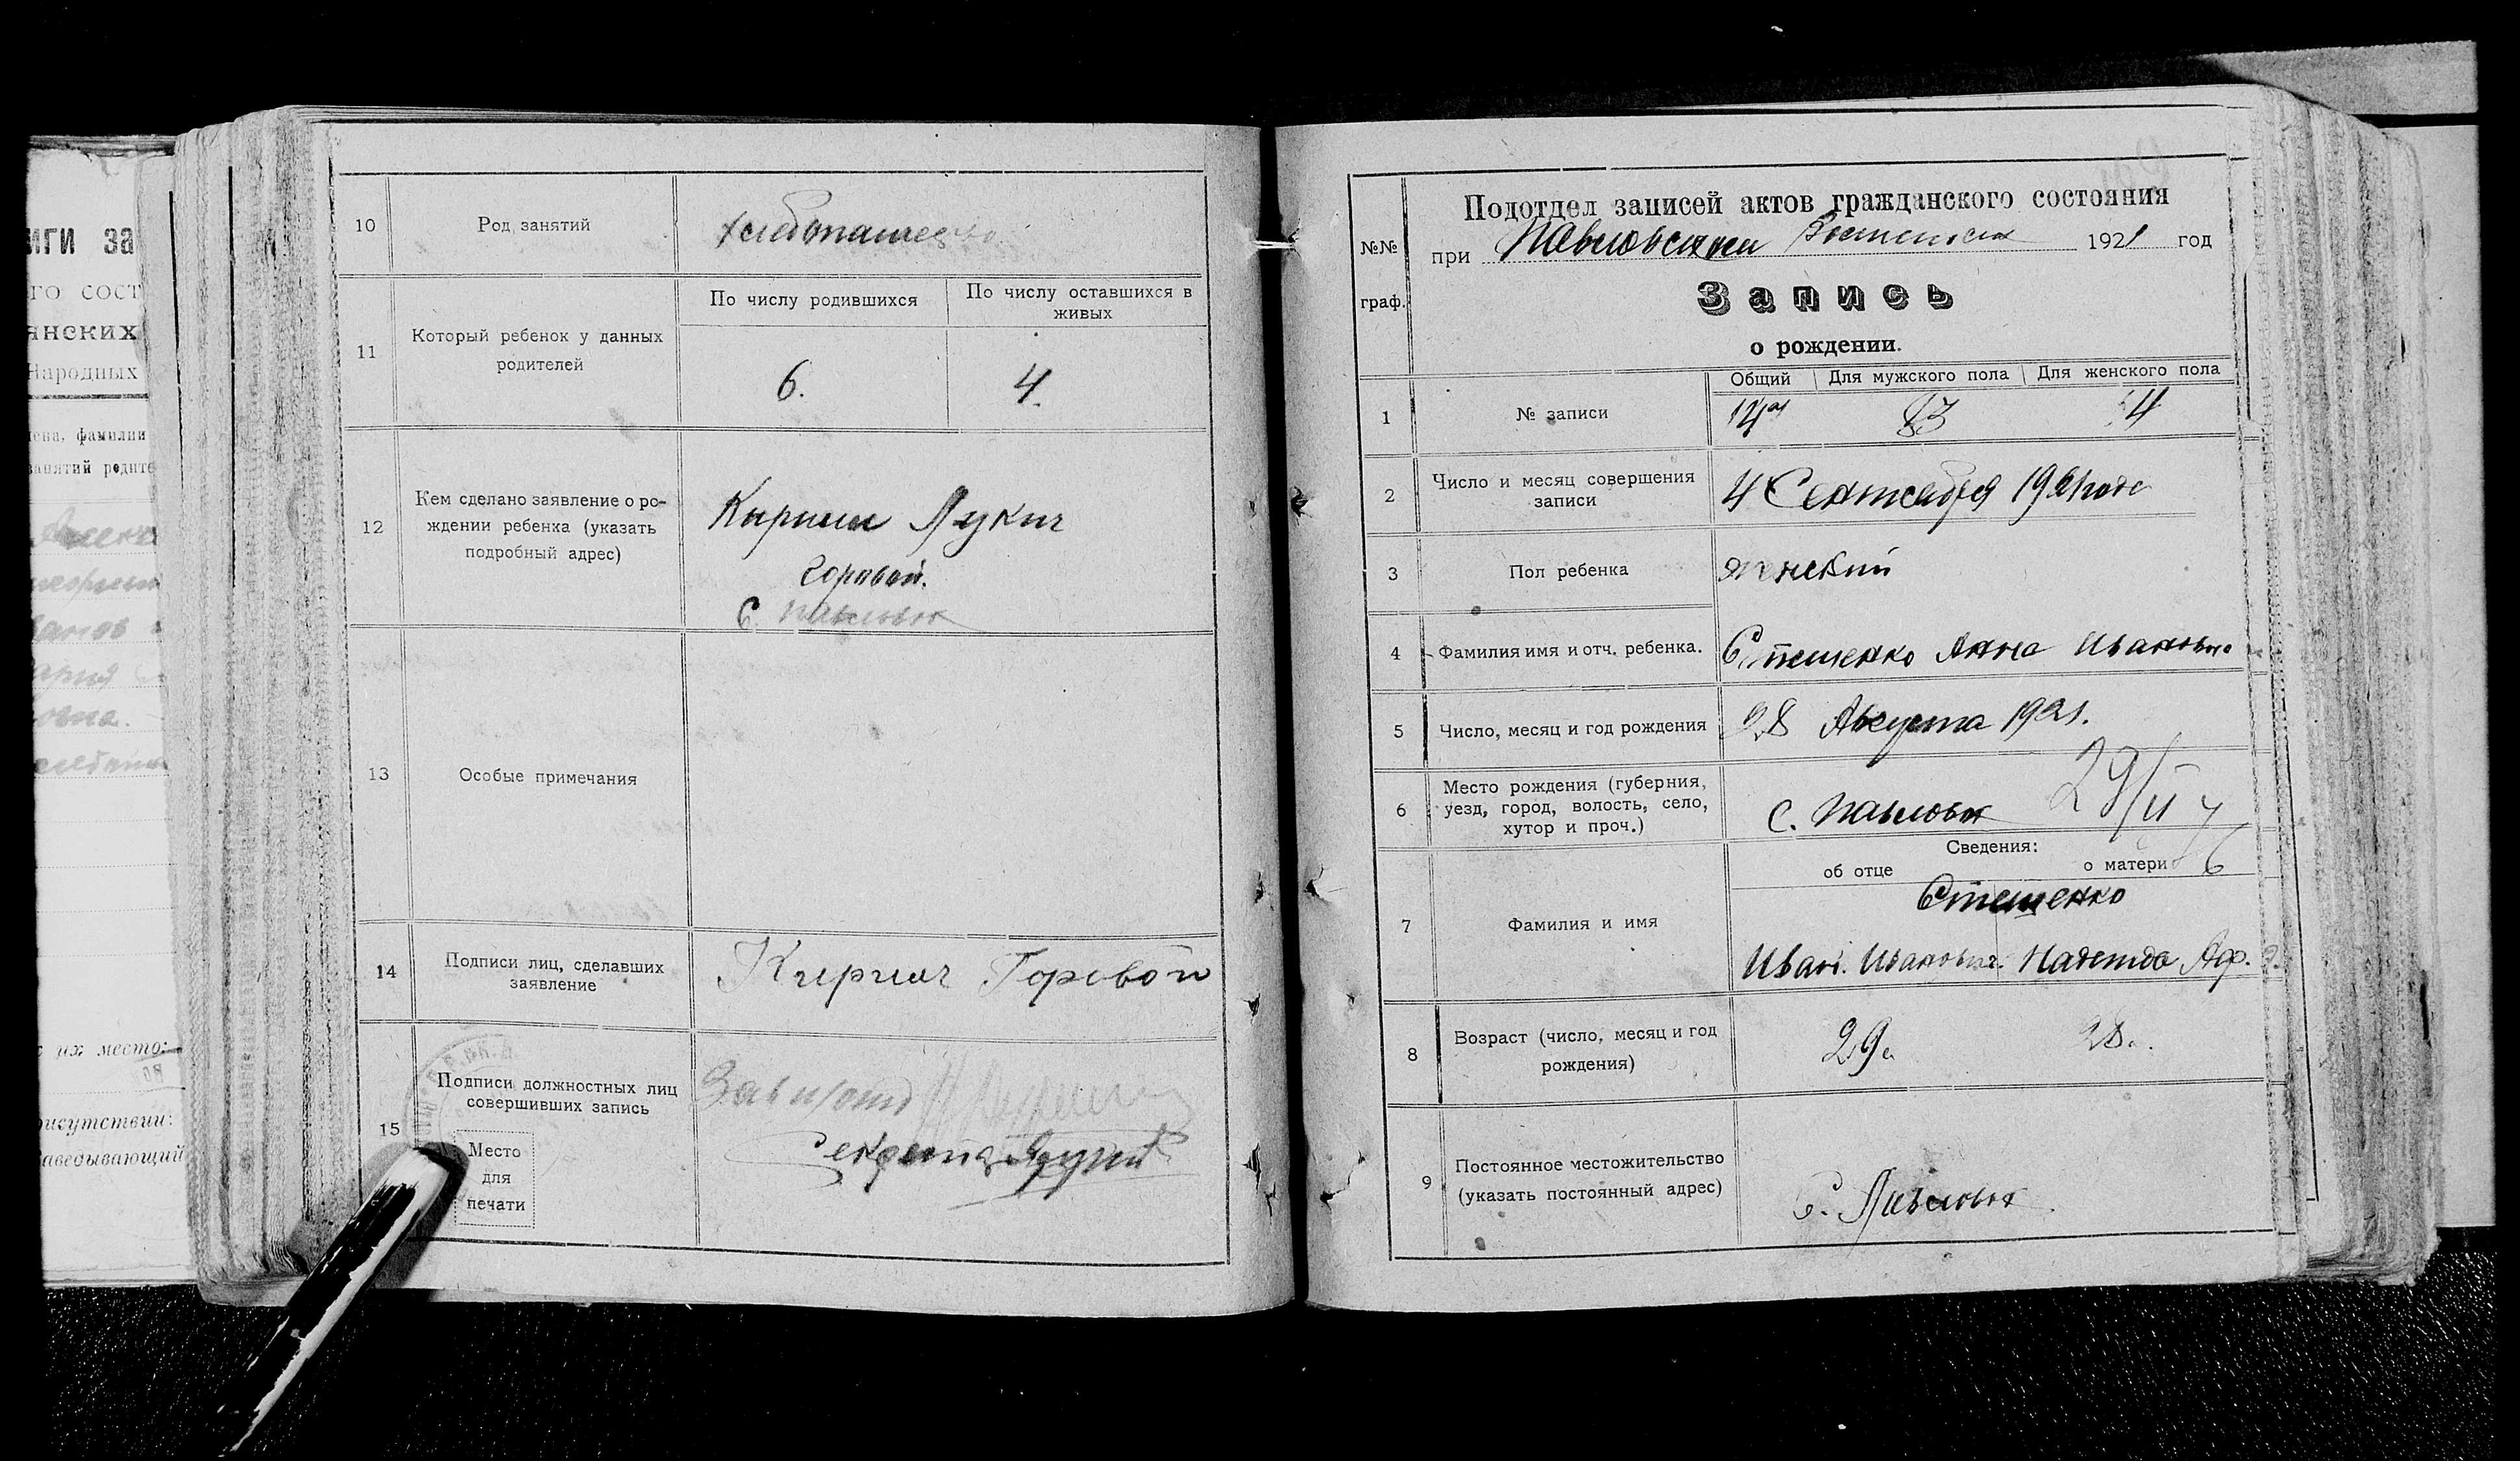 иги за
го сост
янских
Народных
ена, фамилии
занятий родите
их место:
рисутствии:
аведывающий
10 Род занятий хлебопашество
11 Который ребенок у данных родителей
По числу родившихся По числу оставшихся в живых
6. 4.
12 Кем сделано заявление о ро-
ждении ребенка (указать
подробный адрес)
Лукич
Горовой.
С. Павловк
13 Особые примечания
14 Подписи лиц, сделавших
заявление
Горовой
15 Подписи должностных лиц
совершивших запись
Место
для
печати
№№
граф.
Подотдел записей актов гражданского состояния
при Павловском 1921 год
Запись
о рождении.
Общий Для мужского пола Для женского пола
1 № записи 83 4
2 Число и месяц совершения
записи
4 Сентября 1921 года
3 Пол ребенка женский
4 Фамилия имя и отч. ребенка. Стешенко Анна Ивановна
5 Число, месяц и год рождения 28 Августа 1921.
6 Место рождения (губерния,
уезд, город, волость, село,
хутор и проч.)
с. Павловк
29/II
Сведения:
об отце о матери
7 Фамилия и имя
Стешенко
Иван. Иванович. Надежда Аф.
8 Возраст (число, месяц и год
рождения)
29 28.
9 Постоянное местожительство
(указать постоянный адрес)
С. Павловк